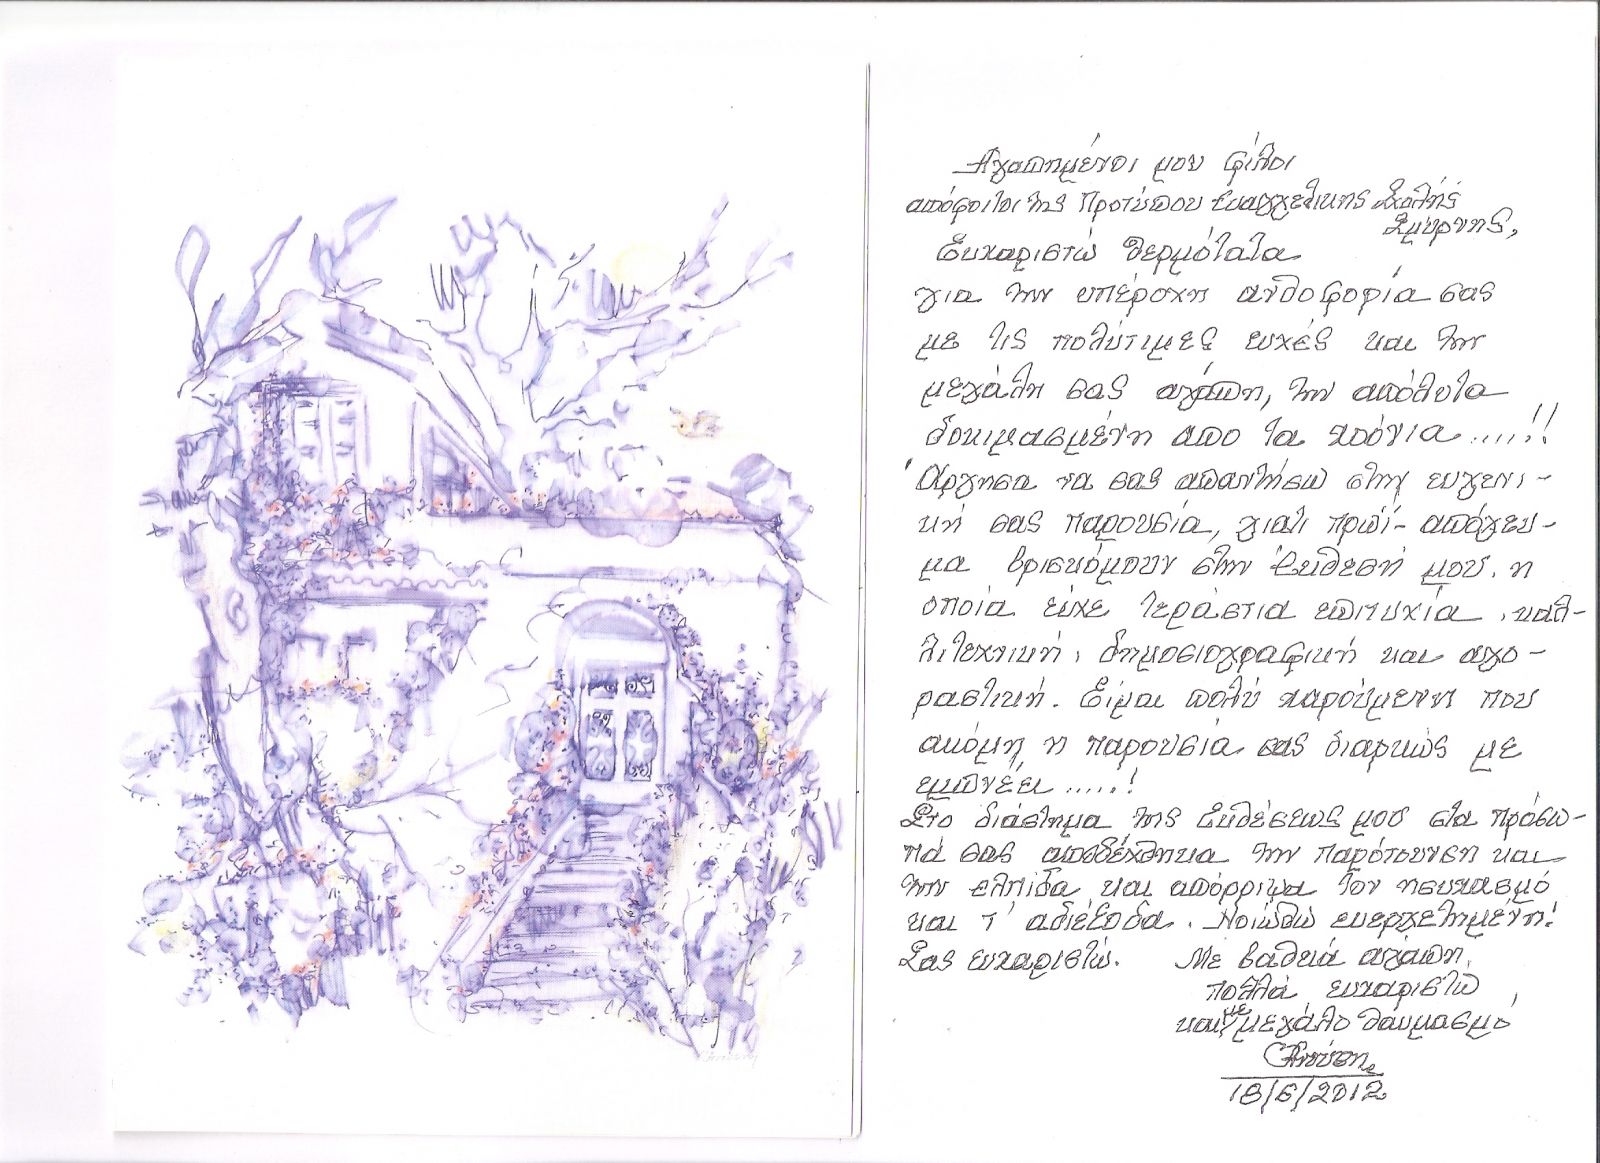 Αγαπημένοι μου φίλοι
απόφοιτοι της Προτύπου Ευαγγελικής Σχολής
Σμύρνης,
Ευχαριστώ θερμότατα
για την υπέροχη ανθοφορία σας
με τις πολύτιμες ευχές και την
μεγάλη σας αγάπη, την απόλυτα
δοκιμασμένη απο τα χρόνια.....!!
Άργησα να σας απαντήσω στην ευγενι-
κή σας παρουσία, γιατί πρωί-απόγευ-
μα βρισκόμουν στην Έκθεσή μου. η
οποία είχε τεράστια επιτυχία, καλ-
λιτεχνική, δημοσιογραφική και αγο-
ραστική. Είμαι πολύ χαρούμενη που
ακόμη η παρουσία σας διαρκώς με
εμπνέει.....!
Στο διάστημα της Εκθέσεως μου στα πρόσω-
πά σας αποδέχθηκα την παρότρυνση και
την ελπίδα και απόρριψα τον ησυχασμό
και τ' αδιέξοδα. Νοιώθω ευεργετημένη!
Σας ευχαριστώ. Με βαθειά αγάπη,
πολλά ευχαριστώ
και με μεγάλο θαυμασμό
18/6/2012